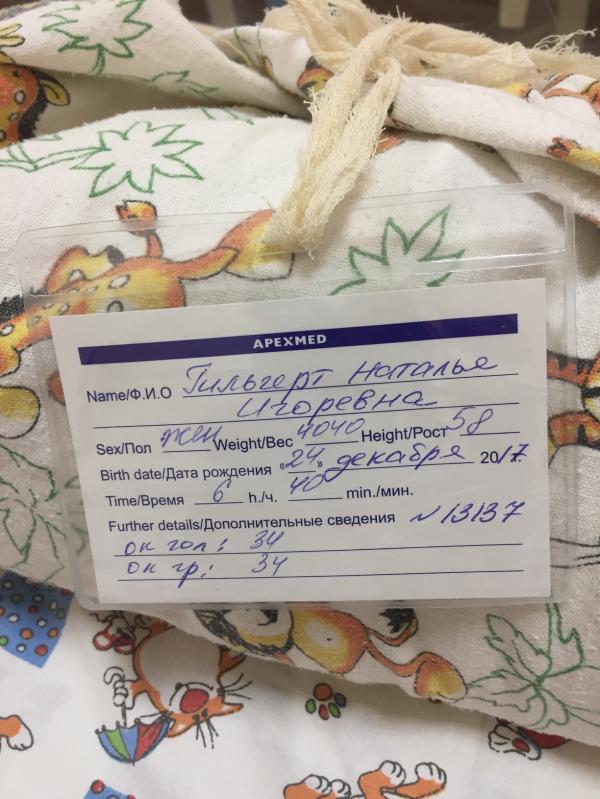 APEXMED
Name/Ф.И.О Гильгерт Наталье
Игоревна
Sex/Пол жен Weight/Вес 4040 Height/Рост 58
Birth date/Дата рождения «24» декабря 2017г.
Time/Время 6 h./ч. 40 min./мин.
Further details/Дополнительные сведения N 13137
ок гол: 34
ок гр: 34